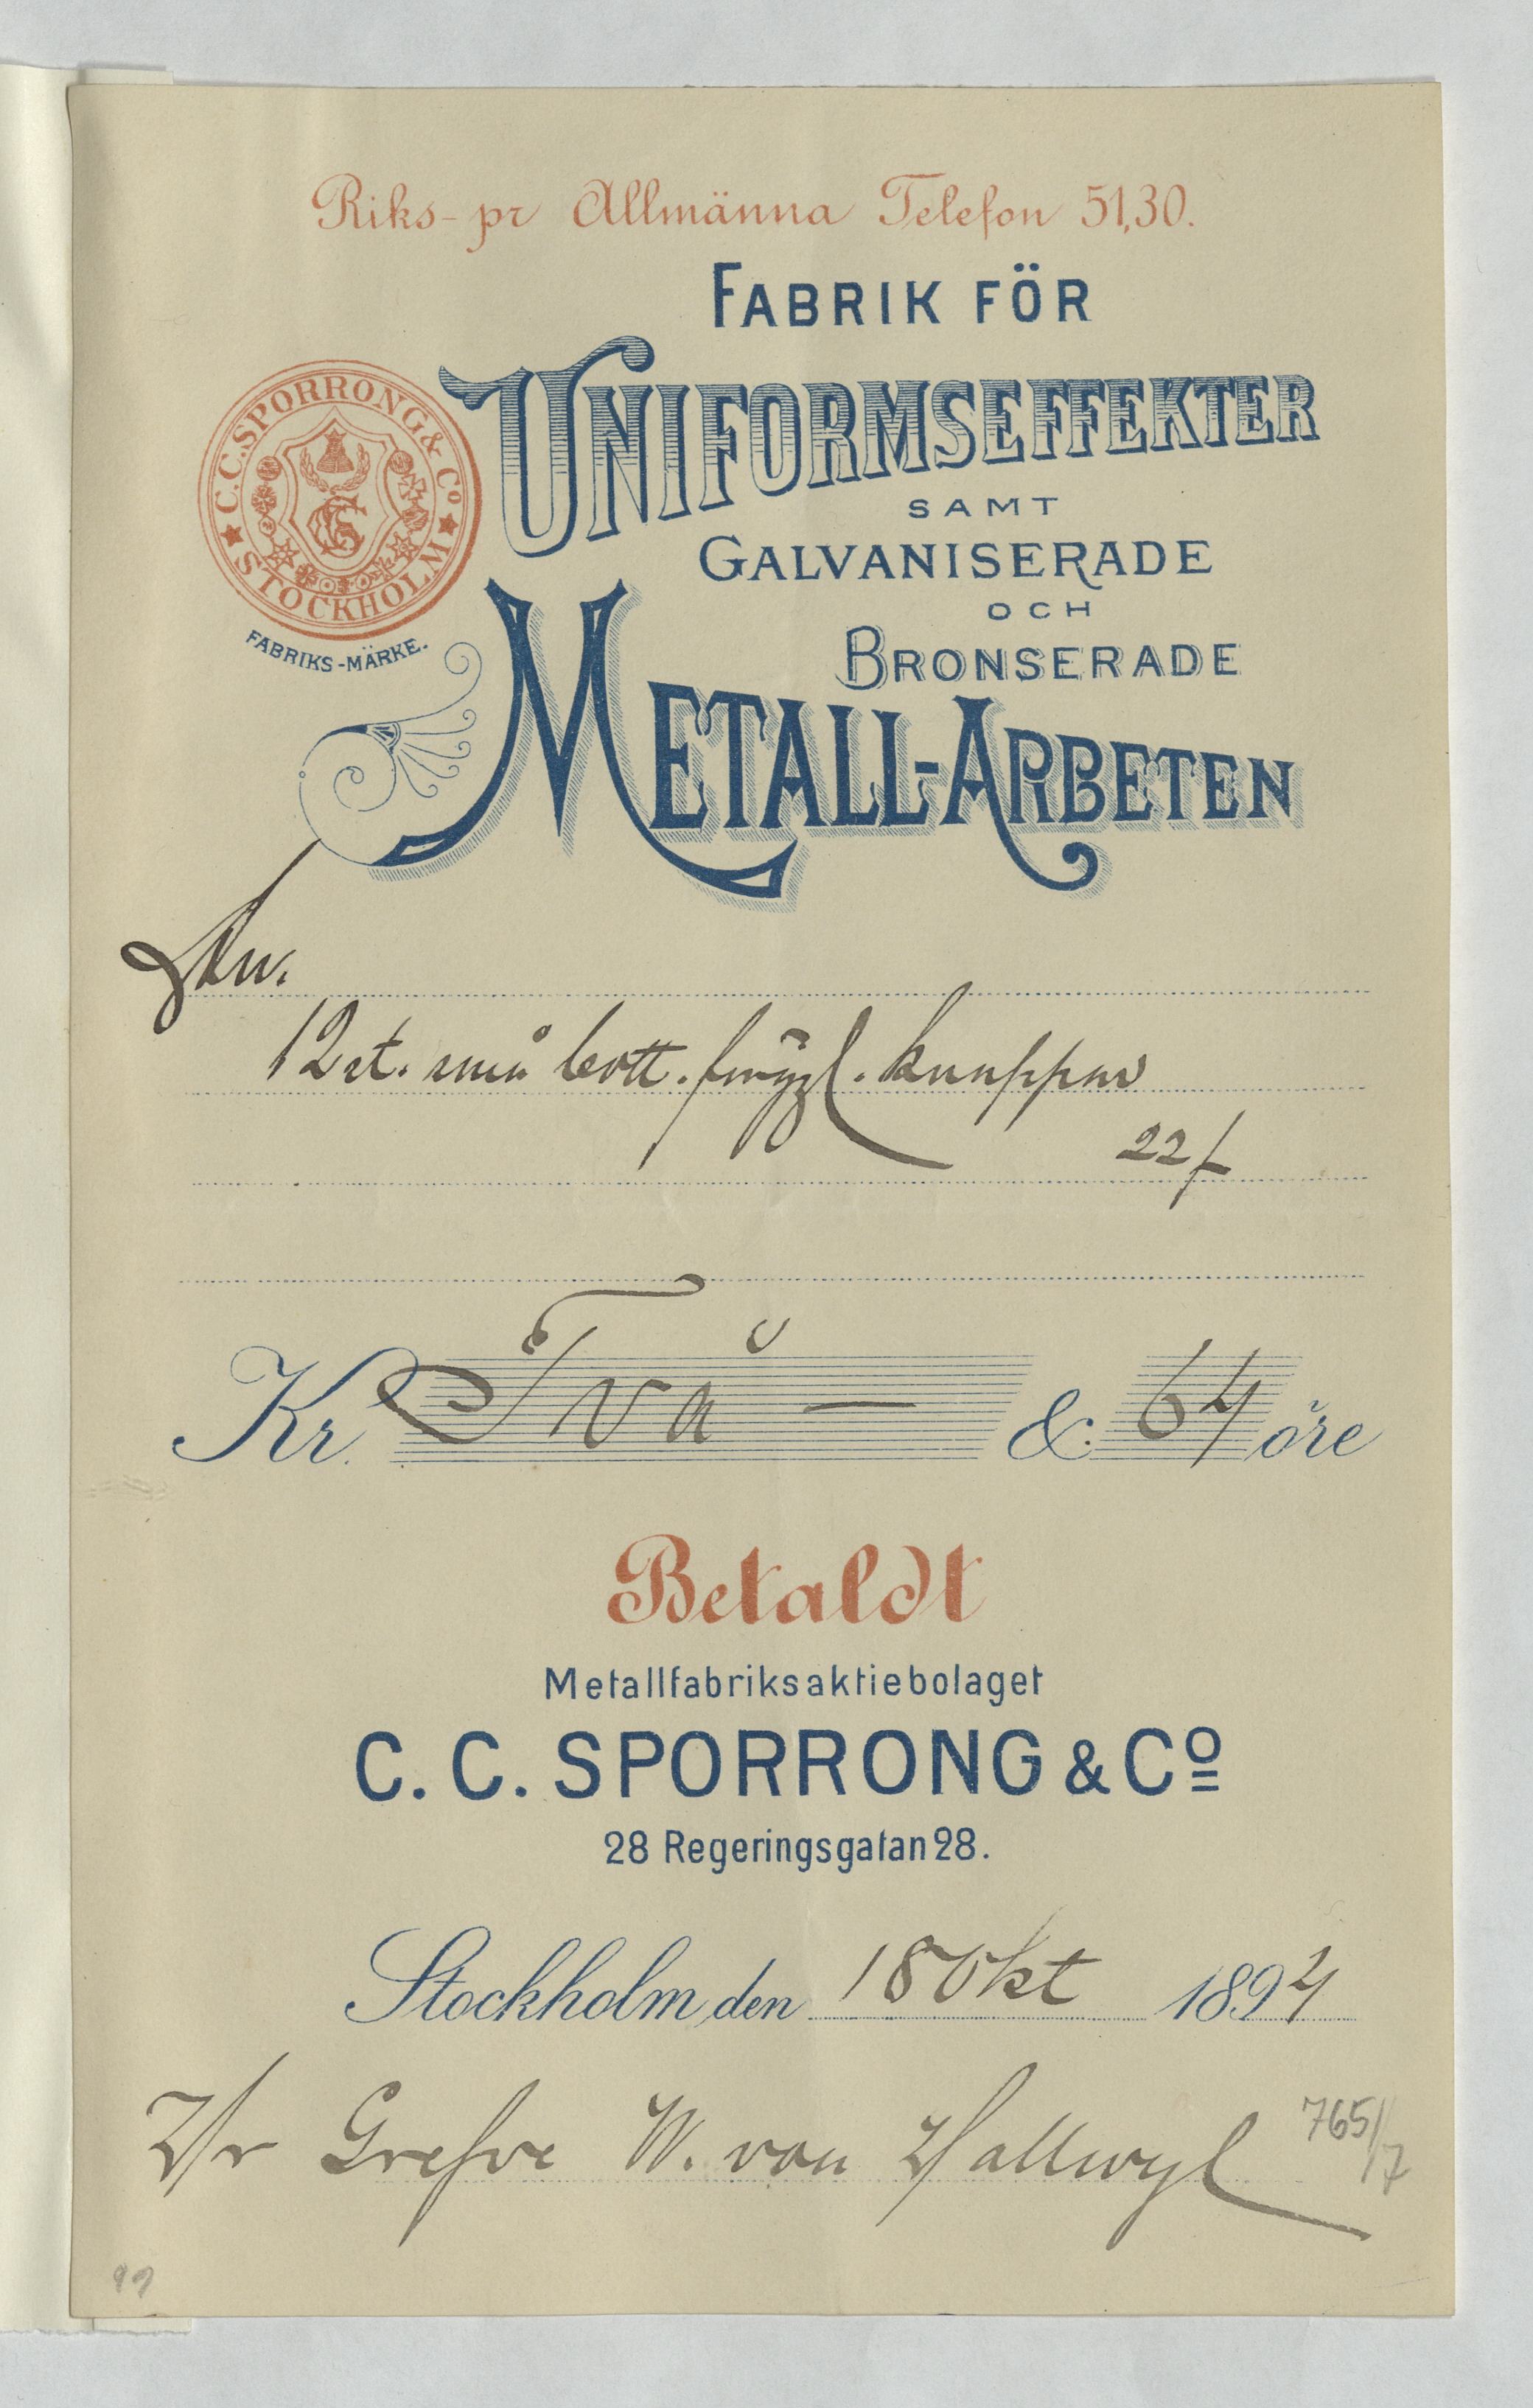 Riks- pr Allmänna Telefon 51,30.
FABRIK FÖR
UNIFORMSEFFEKTER
SAMT
GALVANISERADE
OCH
BRONSERADE
METALL-ARBETEN
C.C. SPORRONG & Co
STOCKHOLM
FABRIKS-MÄRKE.
12 st. små bott. förgyl. knappar
22/-
Kr. Två — & 64 öre
Betaldt
Metallfabriksaktiebolaget
C. C. SPORRONG & Co
28 Regeringsgatan 28.
Stockholm, den 18 Okt 1894
Hr Grefve W. von Hallwyl
765/7
99